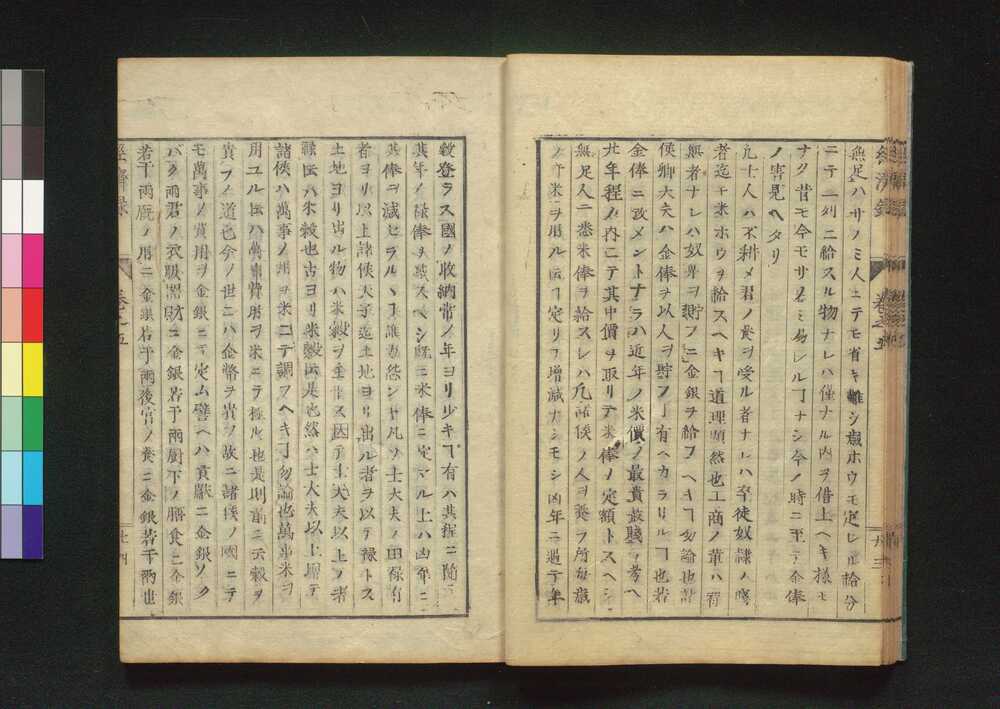 經濟録 卷之五
無足ハサノミ人ニテモ省キ難シ歳ホウモ定レル給分
ニテ一列ニ給スル物ナレハ僅ナル内ヲ借上ヘキ様モ
ナク昔モ今モサノミ易レルヿナシ今ノ時ニ至テ金俸
ノ害見ヘタリ
凡士人ハ不耕メ君ノ食ヲ受ル者ナレハ卒徒奴隷ノ
者迄モ米ホウヲ給スヘキヿ道理顕然也工商ノ輩ハ
無者ナレハ奴婢ヲ貯フニ金銀ヲ給フヘキヿ勿論也諸
侯卿大夫ハ金俸ヲ以人ヲ貯フヿ有ヘカラサルヿ也若
金俸ニ改メントナラハ近年ノ米價ノ最貴最賤ヲ考ヘ
廿年程ノ内ニテ其中價ヲ取リテ米俸ノ定額トスヘシ
無足人ニ悉米俸ヲ給スレハ凡諸侯ノ人ヲ養フ所毎歳
ノ米ヲ用ル定リテ増減ナシモシ凶年ニ遇テ年
穀登ラス國ノ收納常ノ年ヨリ少キヿ有ハ其程ニ隨
其年ノ禄俸ヲ減スヘシ既ニ米俸ニ定マル上ハ凶年ニ
其俸ヲ減セラルヽヿ誰カ怨シヤ凡ソ士大夫ノ田禄有
者ヨリ以上諸侯天子迄土地ヨリ出ル者ヲ以テ禄トス
土地ヨリ出ル物ハ米穀ヲ主トス因テ士大夫以上ノ諸
禄ハ米穀也古ヨリ米穀是也然ハ士大夫以上
諸侯ハ萬事ノ用ヲ米ニテ調フヘキヿ勿論也萬事米ヲ
用ユルハ萬事費用ヲ米ニテ極ル也是則前ニ云穀ヲ
貴フノ道也今ノ世ニハ金幣ヲ貴フ故ニ諸侯ノ國ニテ
モ萬事ノ費用ヲ金銀ニテ定ム譬ヘハ貢獻ニ金銀ソク
バク兩君ノ衣服器財ニ金銀若干兩厨下ノ膳食ニ金銀
若干兩厩ノ用ニ金銀若干兩後宮ノ養ニ金銀若干兩也
經濟録 卷之五 廿四